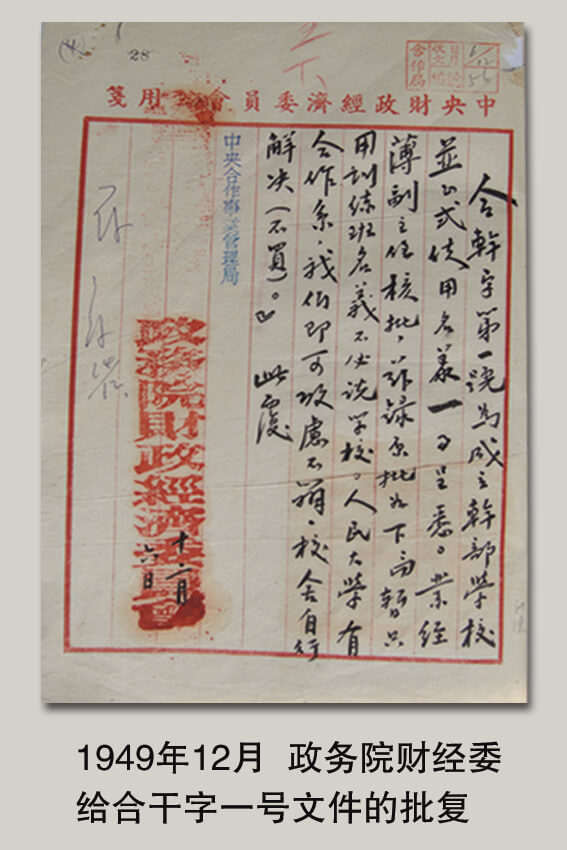 (4)
28
合作局
中央財政經濟委員會用箋
合幹字第一號為成立幹部學校
並正式使用名義一事呈悉。業經
薄副主任核批，茲錄原批如下：「暫只
用訓練班名義不必說學校。人民大學有
合作系，我們即可攷慮不辦，校舍自行
解决（不買）。」 此覆
中央合作事業管理局
政務院財政經濟委員會
十二月
六日
1949年12月 政务院财经委
给合干字一号文件的批复